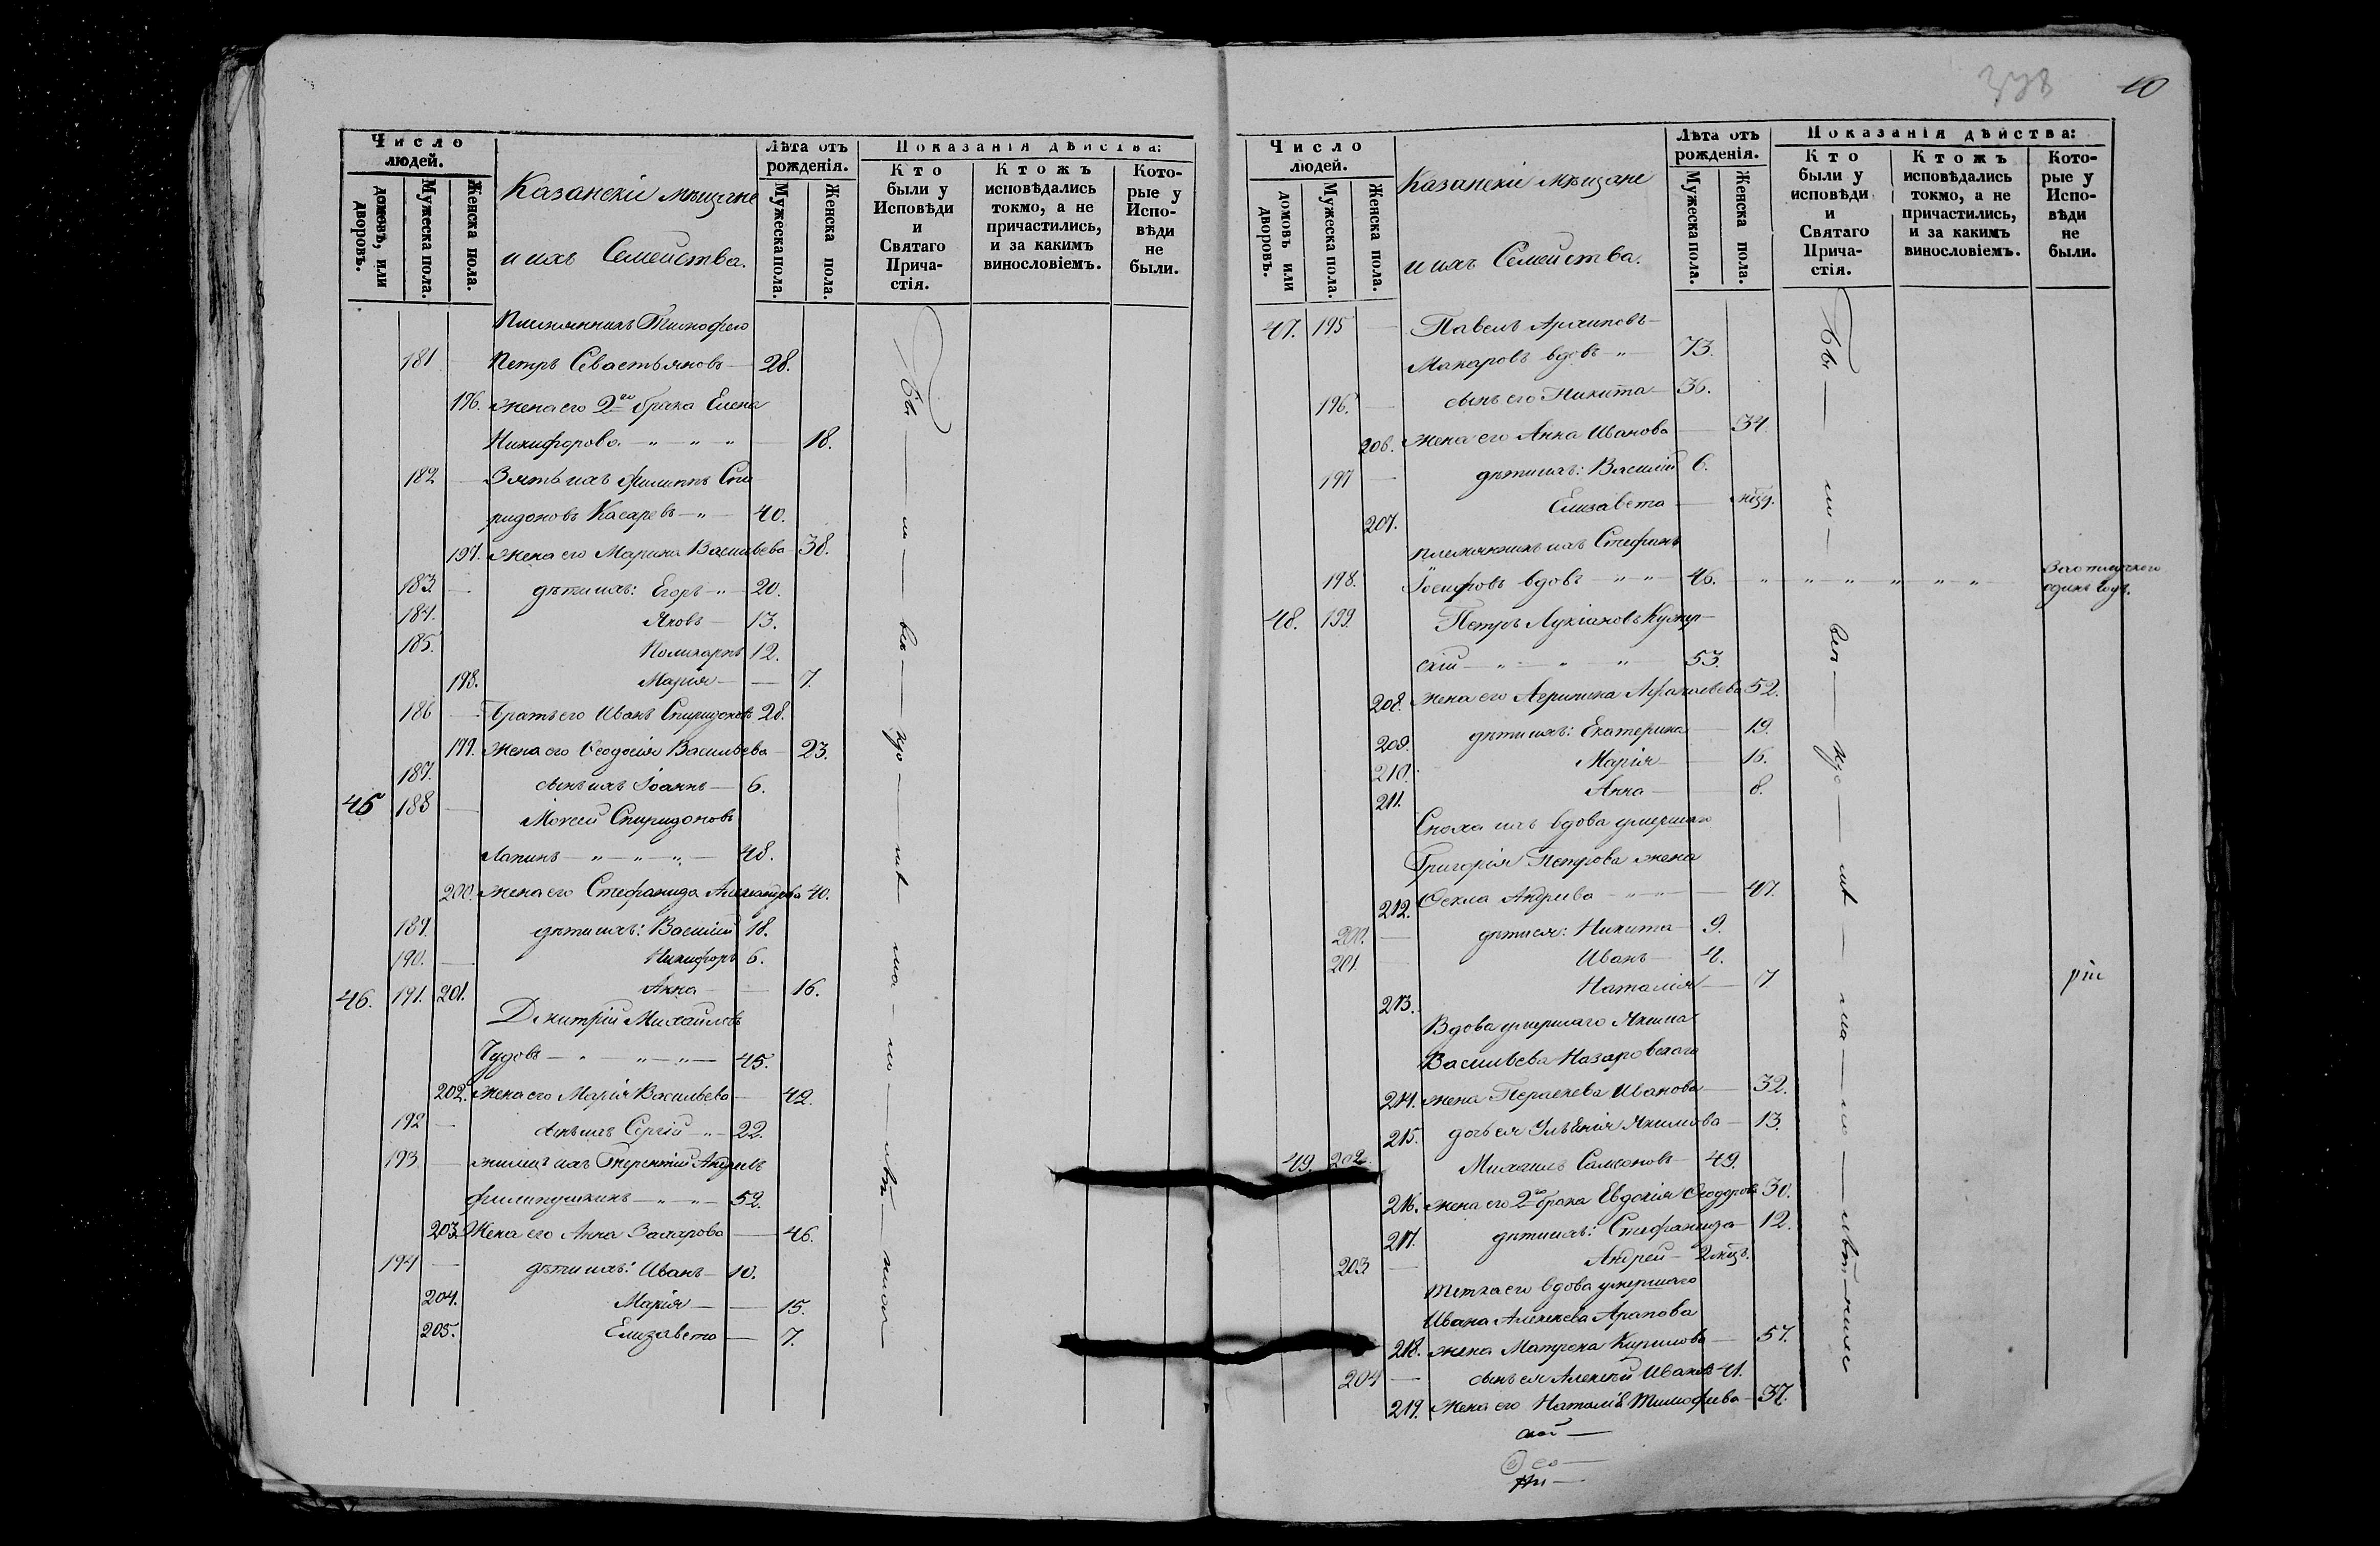 Число людей.
домовъ, или дворовъ.
Мужеска пола.
Женска пола.
Казанскіе мѣщане
и ихъ Семейства.
Лѣта отъ рожденія.
Мужеска пола.
Женска пола.
Показанія дѣйства:
Кто были у Исповѣди и Святаго Прича-стія.
Ктожъ исповѣдались токмо, а не причастились, и за какимъ винословіемъ.
Кото-рые у Испо-вѣди не были.
Племянникъ Тимофея
181 Петръ Севастьяновъ — 28.
196. жена его 2го брака Елена
Никифорова — " — " — " — 18.
182 — Зять ихъ Филиппъ Спи
ридоновъ Касаревъ — " — 40.
197. жена его Марина Васильева — 38.
183. — дѣти ихъ: Егоръ — " — 20.
184. Яковъ — 13.
185. Поликарпъ 12.
198. Марія — — 7.
186 — Братъ его Иванъ Спиридоновъ 28.
199. жена его Ѳеодосія Васильева — 23.
187. сынъ ихъ Іоаннъ — 6.
45 188 — Моисей Спиридоновъ
Лапинъ — " — " — " — 48.
200. жена его Стефанида Александрова 40.
189. дѣти ихъ: Василій 18.
190. — Никифоръ 6.
46. 191. 201. Анна — — 16.
Димитрій Михайловъ
Чудовъ — " — " — " — 45.
202. жена его Марія Васильева — 42.
192 — сынъ ихъ Сергій — " — 22.
193 — жилецъ ихъ Терентій Андреевъ
Филипушкинъ — " — " — 52.
203. Жена его Анна Захарова — 46.
194 — дѣти ихъ: Иванъ — 10.
204. Марія — — 15.
205. Елизавета — 7.
Бы — ли — вел — ко — — ни
10
Число людей.
домовъ или дворовъ.
Мужеска пола.
Женска пола.
Казанскіе мѣщане
и ихъ Семейства.
Лѣта отъ рожденія.
Мужеска пола.
Женска пола.
Показанія дѣйства:
Кто были у исповѣди и Святаго Прича-стія.
Ктожъ исповѣдались токмо, а не причастились, и за какимъ винословіемъ.
Кото-рые у Испо-вѣди не были.
47. 195 — Павелъ Архиповъ —
Макаровъ вдовъ — " — 73.
196. — сынъ его Никита — 36.
206. жена его Анна Иванова — 34.
197 — дѣти ихъ: Василій 6.
207. Елизавета — мѣц.
племянникъ ихъ Стефанъ
198. Іосифовъ вдовъ — " — " — 46. — " — " — " — " — " — "
одинъ годъ.
48. 199. Петръ Лукіановъ
скій — " — " — " — 53.
208. жена его Агрипина 52.
209. дѣти ихъ: Екатерина — 19.
210. Марія — — 15.
211. Анна — — 8.
Сноха ихъ вдова умершаго
Григорія Петрова жена
212. Ѳекла Андреева — " — " — 47.
200. — дѣти ея: Никита — 9.
201. — Иванъ — 4.
213. Наталія — 7
Вдова умершаго Якима
Васильева Назаровскаго
214. жена Параскева Иванова — 32.
215. дочь ея Ульянія Якимова — 13.
49. 202. Михаилъ Самсоновъ — 49.
216. жена его 2го брака Евдокія Ѳеодорова 30.
217. дѣти ихъ: Стефанида — 12.
203 — Андрей — 2 мѣц.
тетка его вдова умершаго
Ивана Алексѣева Арапова
218. жена Матрена Кирилова — 57.
204 — сынъ ея Алексѣй Ивановъ 41.
219. жена его Наталія Тимофеева — 37.